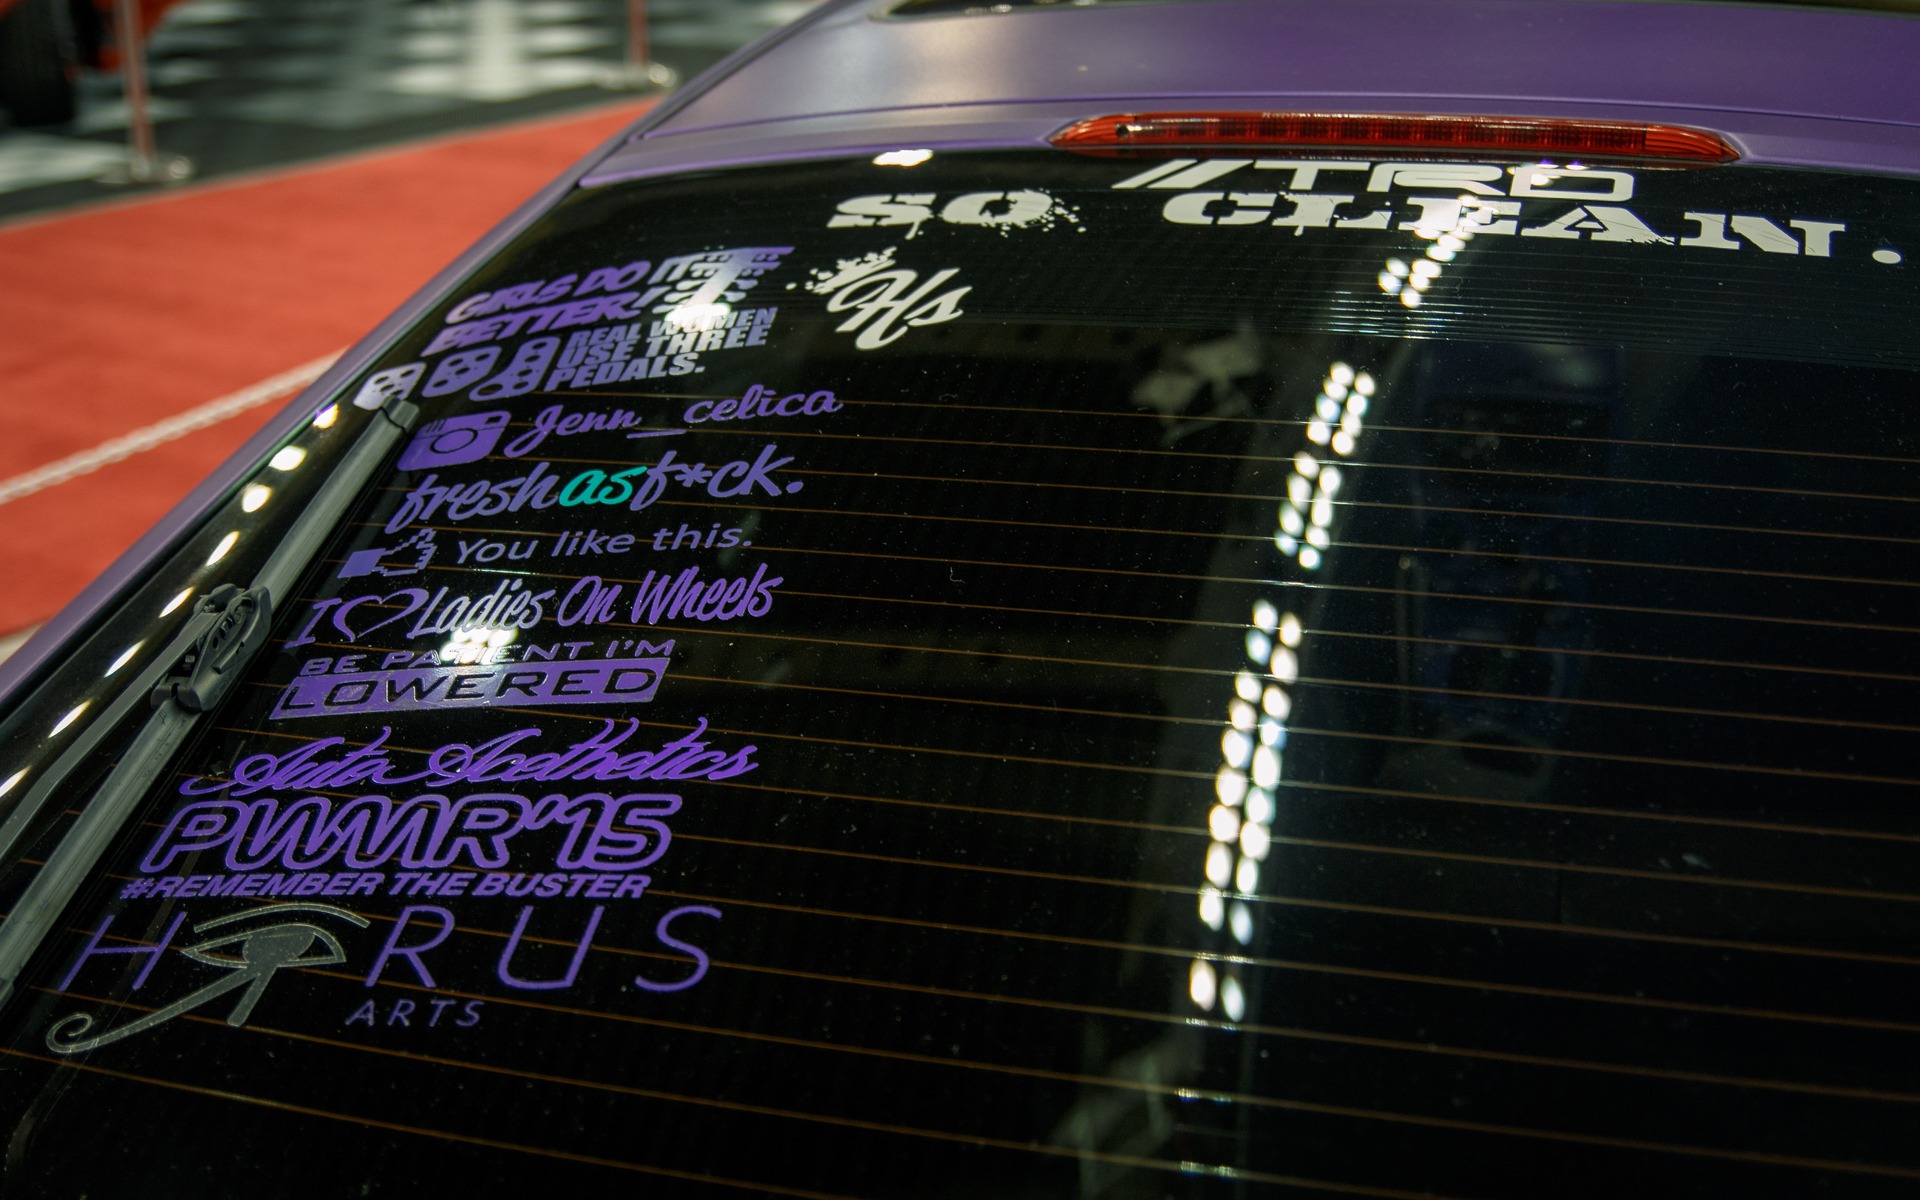 //TRD
SO CLEAN.
Hs
GIRLS DO IT
BETTER!
REAL WOMEN
USE THREE
PEDALS.
Jenn_celica
freshasf*ck.
You like this.
I Ladies On Wheels
BE PATIENT I'M
LOWERED
Auto Aesthetics
PWMR'15
#REMEMBER THE BUSTER
HORUS
ARTS